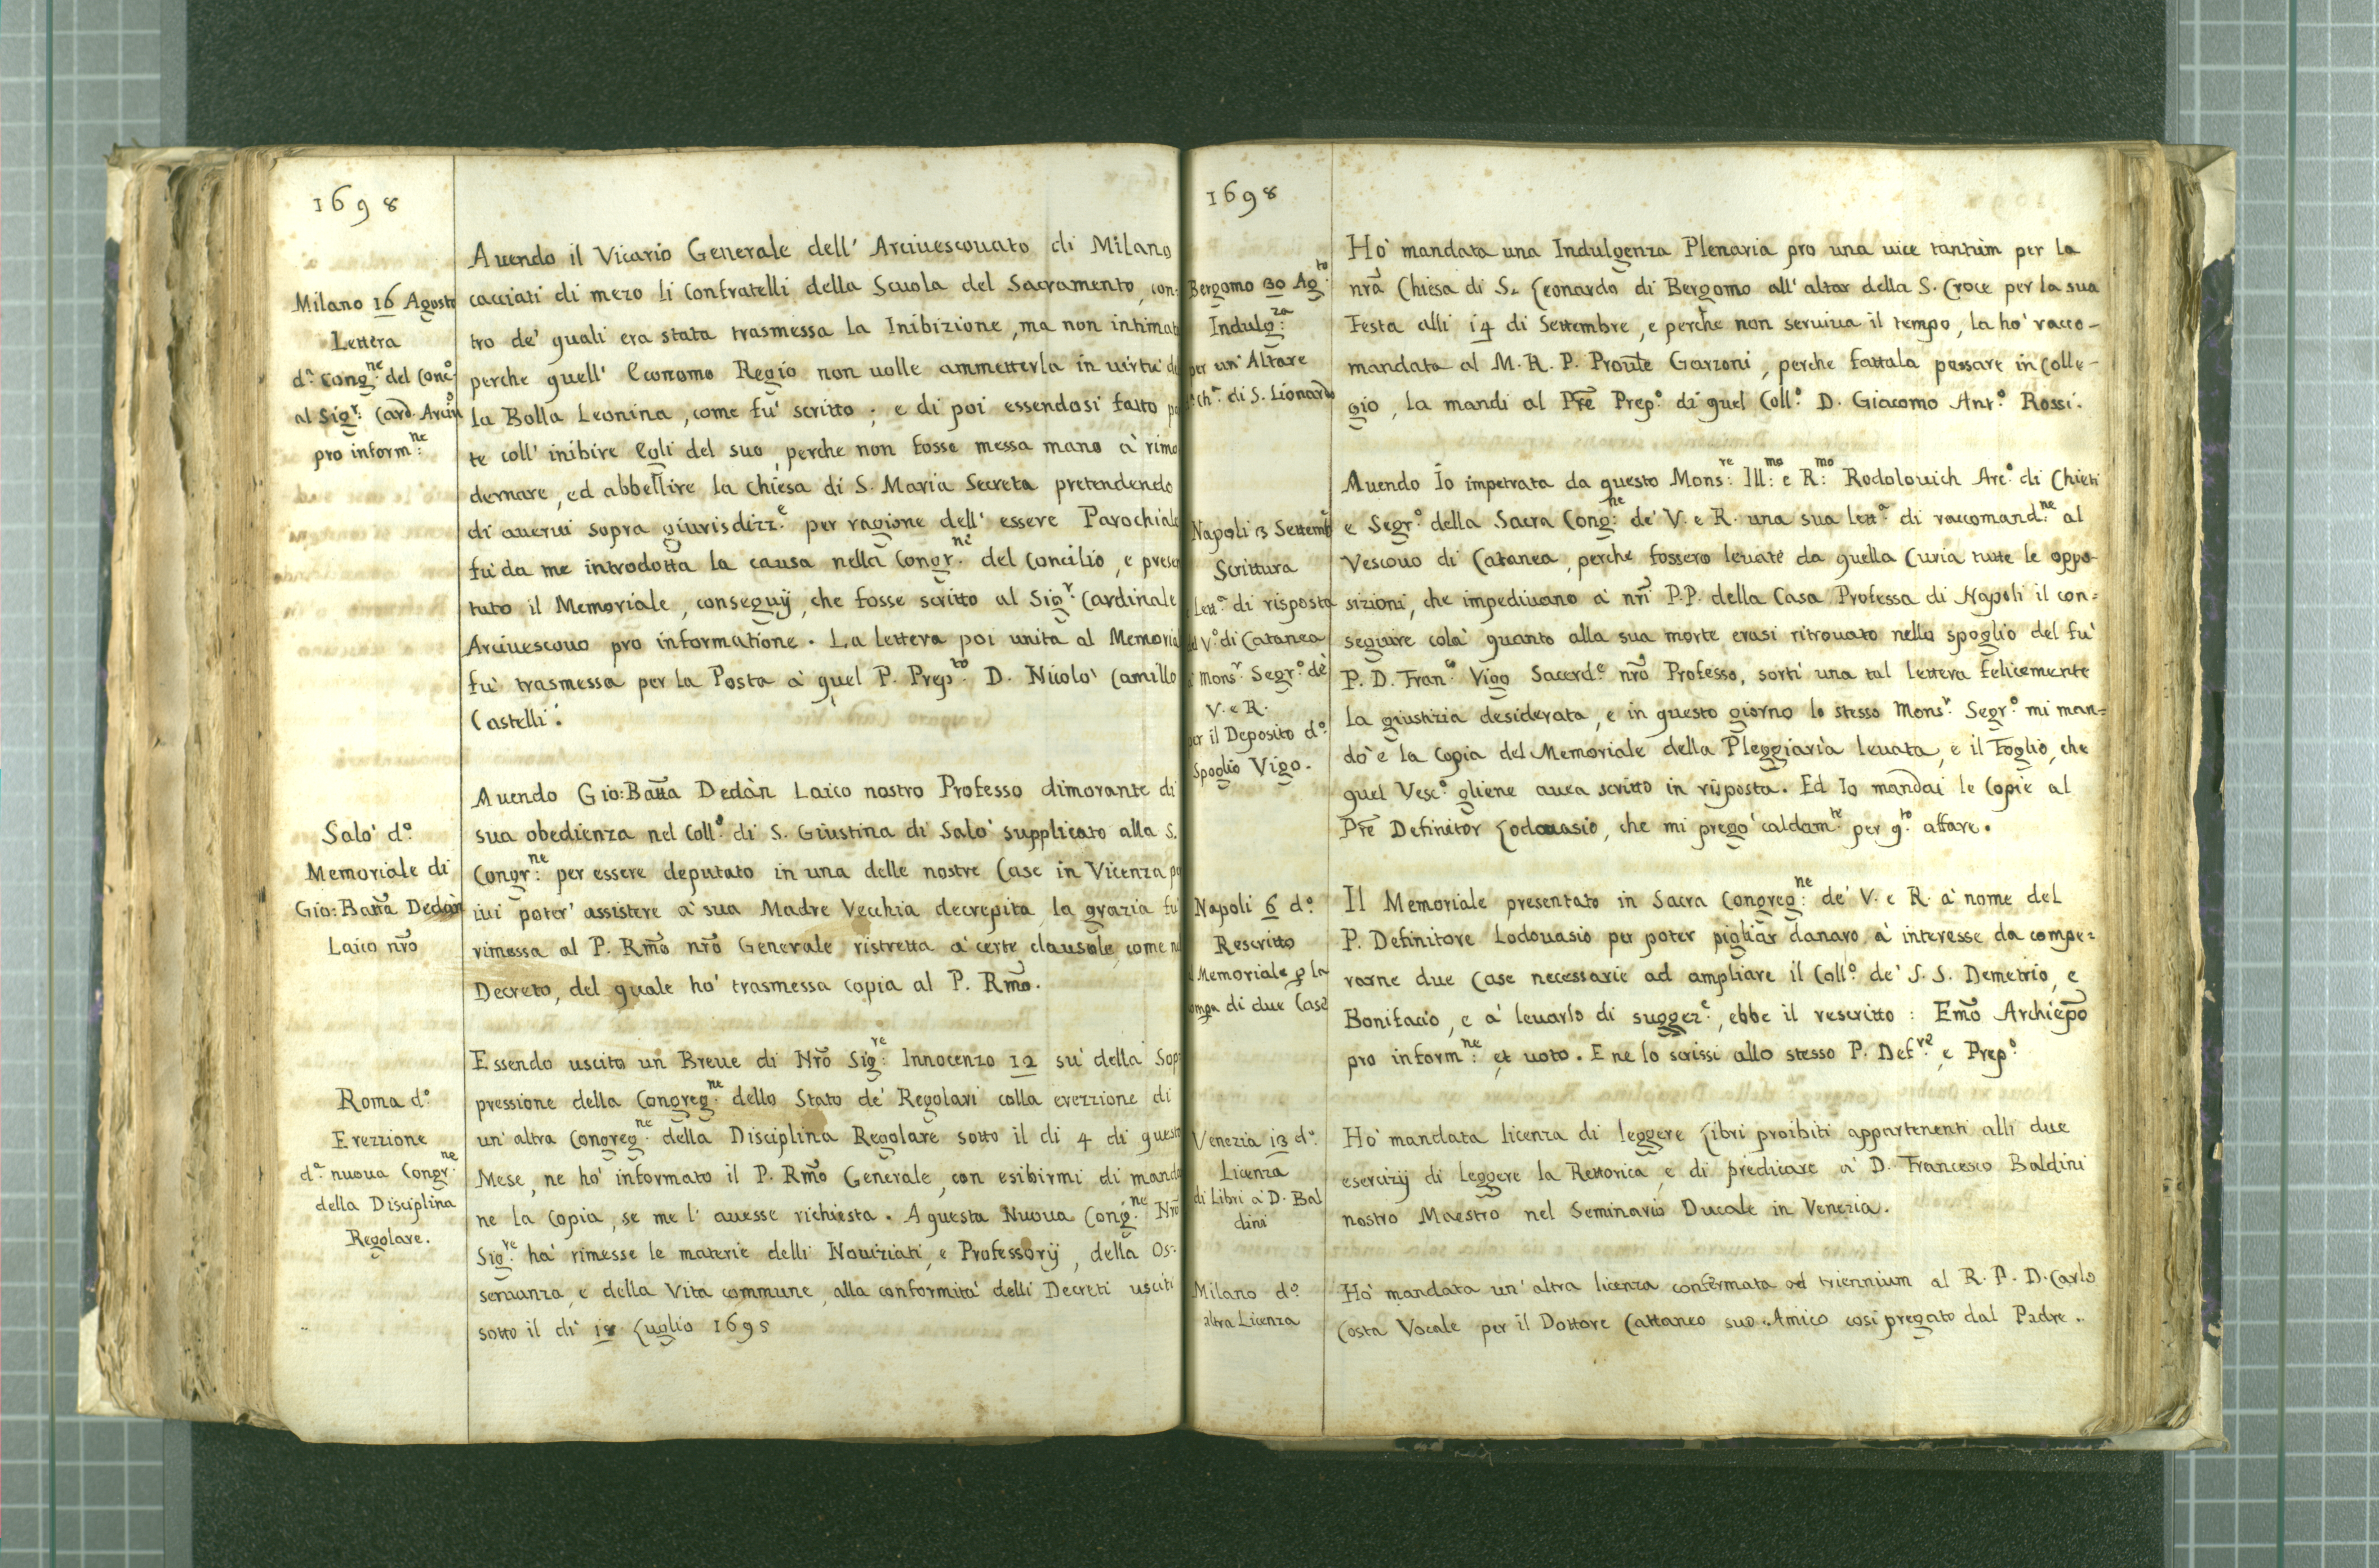 1698
Milano 16 Agosto
Lettera
d.ª Cong.ne del Conc.º
al Sig.r Card. Arciu.º
pro inform.ne
Auendo il Vicario Generale dell' Arciuescouato di Milano
cacciati di mezo li Confratelli della Scuola del Sacramento, con-
tro de' quali era stata trasmessa la Inibizione, ma non intimata
perche quell' Economo Regio non uolle ammetterla in uirtù
la Bolla Leonina, come fu' scritto; e di poi essendosi fatto
te coll' inibire Egli del suo, perche non fosse messa mano à rimo
dernare, ed abbellire la Chiesa di S. Maria Secreta pretendendo
di auerui sopra giurisdizz.e per ragione dell' essere Parochiale
fu' da me introdotta la causa nella Congr.ne del Concilio, e presen
tato il Memoriale, conseguij, che fosse scritto al Sig.r Cardinale
Arciuescouo pro informatione. La lettera poi unita al Memoria
fu' trasmessa per la Posta à quel P. Prep.to D. Nicolo' Camillo
Castelli.
Salo' d.º
Memoriale di
Gio: Batta Dedàn
Laico nr̃o
Auendo Gio: Batta Dedàn Laico nostro Professo dimorante di
sua obedienza nel Coll.º di S. Giustina di Salo' supplicato alla S.
Congr.ne per essere deputato in una delle nostre Case in Vicenza
iui poter' assistere a' sua Madre Vecchia decrepita, la grazia fu'
rimessa al P. Rm̃o nr̃o Generale ristretta a' certe clausole, come
Decreto, del quale ho' trasmessa copia al P. Rm̃o.
Roma d.º
Erezzione
d.ª nuoua Congr.ne
della Disciplina
Regolare.
Essendo uscito un Breue di Nr̃o Sig.re Innocenzo 12 su' della Sop
pressione della Congreg.ne dello Stato de' Regolari colla erezzione di
un' altra Congreg.ne della Disciplina Regolare sotto il di 4 di questo
Mese, ne ho' informato il P. Rm̃o Generale, con esibirmi di manda
ne la Copia, se me l' auesse richiesta. A questa Nuoua Cong.ne Nr̃o
Sig.re ha' rimesse le materie delli Nouiziati, e Professorij, della Os-
seruanza, e della Vita commune, alla conformita' delli Decreti usciti
sotto il di 18 Luglio 1695
1698
Bergomo 30 Ag.to
Indulg.za
per un' Altare
Ch.ª di S. Lionardo
Ho' mandata una Indulgenza Plenaria pro una uice tantùm per la
nr̃a Chiesa di S. Leonardo di Bergomo all' altar della S. Croce per la sua
Festa alli 14 di Settembre, e perche non seruiua il tempo, la ho' racco-
mandata al M. R. P. Prou̅le Garzoni, perche fattala passare in Colle-
gio, la mandi al Pr̃e Prep.º di quel Coll.º D. Giacomo Ant.º Rossi.
Napoli 3 Settemb
Scrittura
Lett.ª di risposta
V.º di Catanea
Mons.r Segr.º de'
V. e R.
per il Deposito d.º
Spoglio Vigo.
Auendo Io impetrata da questo Mons.re Ill.mo e R.mo Rodolouich Arc.º di Chieti
e Segr.º della Sacra Cong.ne de' V. e R. una sua lett.ª di raccomand.ne al
Vescouo di Catanea, perche fossero leuate da quella Curia tutte le oppo-
sizioni, che impediuano a' nr̃i P.P. della Casa Professa di Napoli il con-
seguire cola' quanto alla sua morte erasi ritrouato nello spoglio del fu'
P. D. Fran.º Vigo Sacerd.e nr̃o Professo, sorti' una tal lettera felicemente
la giustizia desiderata, e in questo giorno lo stesso Mons.r Segr.º mi man-
do' e la Copia del Memoriale della Pleggiaria leuata, e il Foglio, che
quel Vesc.º gliene auea scritto in risposta. Ed Io mandai le Copie al
Pr̃e Definitor Lodouasio, che mi prego' caldam.te per q.to affare.
Napoli 6 d.º
Rescritto
Memoriale p la
compa di due Case
Il Memoriale presentato in Sacra Congreg.ne de' V. e R. a' nome del
P. Definitore Lodouasio per poter pigliar danaro a' interesse da compe-
rarne due Case necessarie ad ampliare il Coll.º de' S.S. Demetrio, e
Bonifacio, e a' leuarlo di suggez.e, ebbe il rescritto: Em̃o Archiep̃o
pro inform.ne et uoto. E ne lo scrissi allo stesso P. Def.re e Prep.º
Venezia 13 d.º
Licenza
di Libri a' D. Bal
dini
Ho' mandata licenza di leggere Libri proibiti appartenenti alli due
esercizij di leggere la Rettorica, e di predicare a' D. Francesco Baldini
nostro Maestro nel Seminario Ducale in Venezia.
Milano d.º
altra Licenza
Ho' mandata un' altra licenza confermata ad triennium al R. P. D. Carlo
Costa Vocale per il Dottore Cattaneo suo Amico cosi pregato dal Padre.